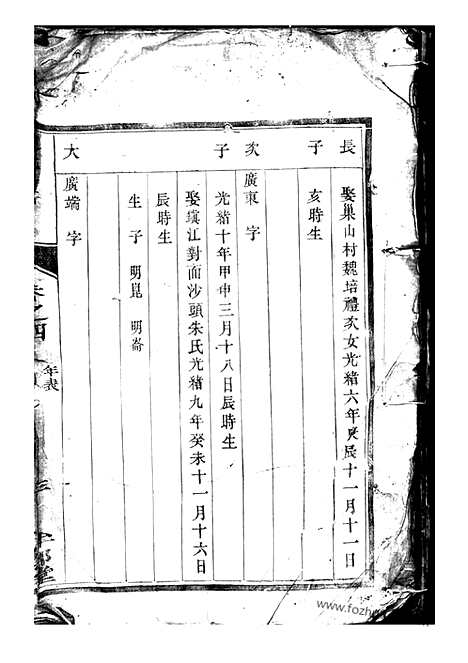 長
娶巢山村魏培禮次女光緒六年庚辰十一月十一日
子
亥時生
次
廣東 字
子
光緒十年甲申三月十八日辰時生
娶鎮江對面沙頭朱氏光緒九年癸未十一月十六日
辰時生
生 子 明崑 明崙
大
廣端 字
卷之四
年表
三
www.fozhu